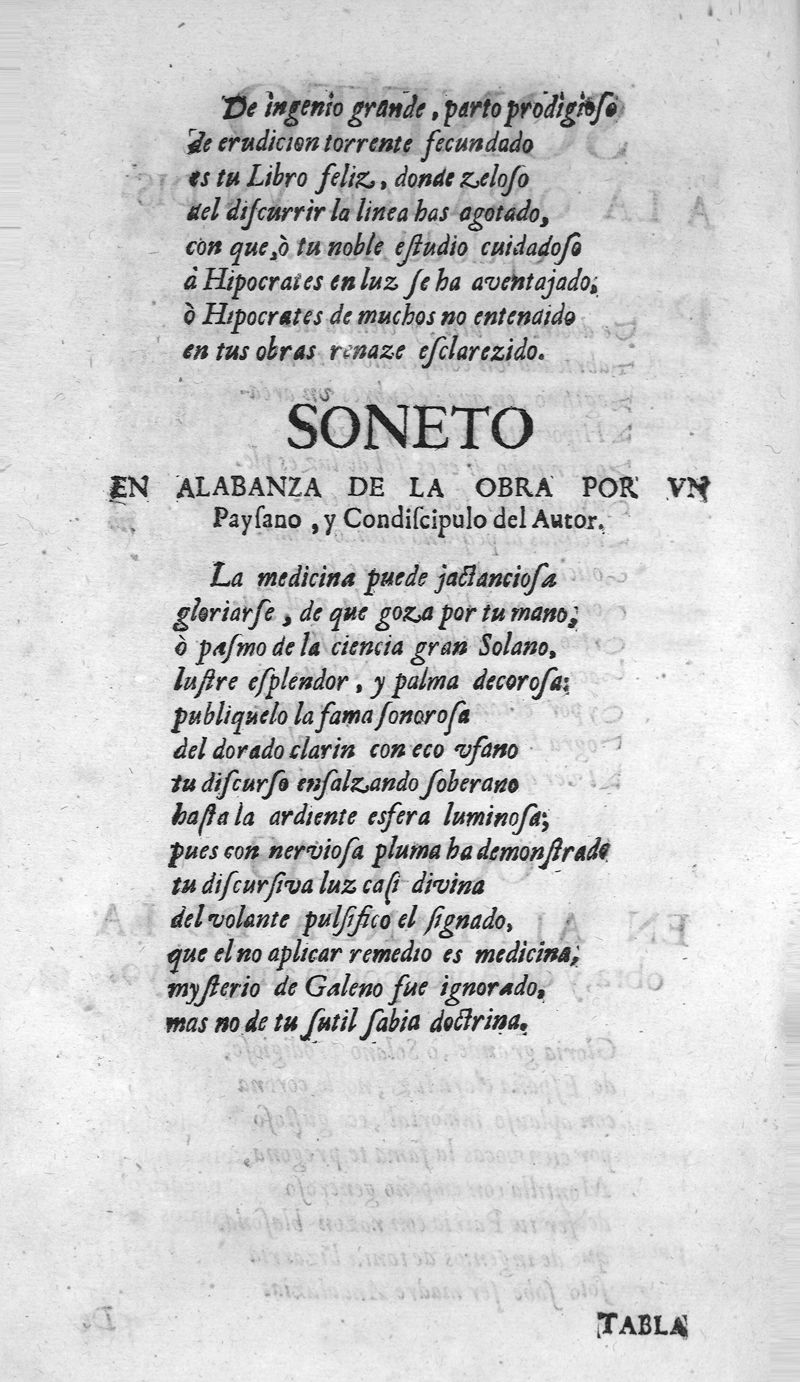 De ingenio grande, parto prodigioſo
de erudicion torrente fecundado
es tu Libro feliz, donde zeloſo
del diſcurrir la linea has agotado,
con que, ò tu noble eſtudio cuidadoſo
à Hipocrates en luz ſe ha aventajado;
ò Hipocrates de muchos no entendido
en tus obras renaze eſclarezido.
SONETO
EN ALABANZA DE LA OBRA POR VN
Payſano, y Condiſcipulo del Autor.
La medicina puede jactancioſa
gloriarſe, de que goza por tu mano;
ò paſmo de la ciencia gran Solano,
luſtre eſplendor, y palma decoroſa;
publiquelo la fama ſonoroſa
del dorado clarin con eco vfano
tu diſcurſo enſalzando ſoberano
haſta la ardiente esfera luminoſa;
pues con nervioſa pluma ha demonſtrado
tu diſcurſiva luz caſi divina
del volante pulſifico el ſignado,
que el no aplicar remedio es medicina;
myſterio de Galeno fue ignorado,
mas no de tu ſutil ſabia doctrina.
TABLA